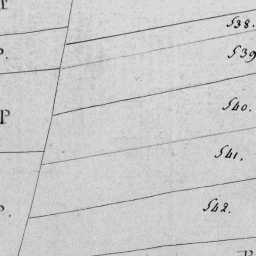 538.
P.
539
540.
P
541.
542.
P.